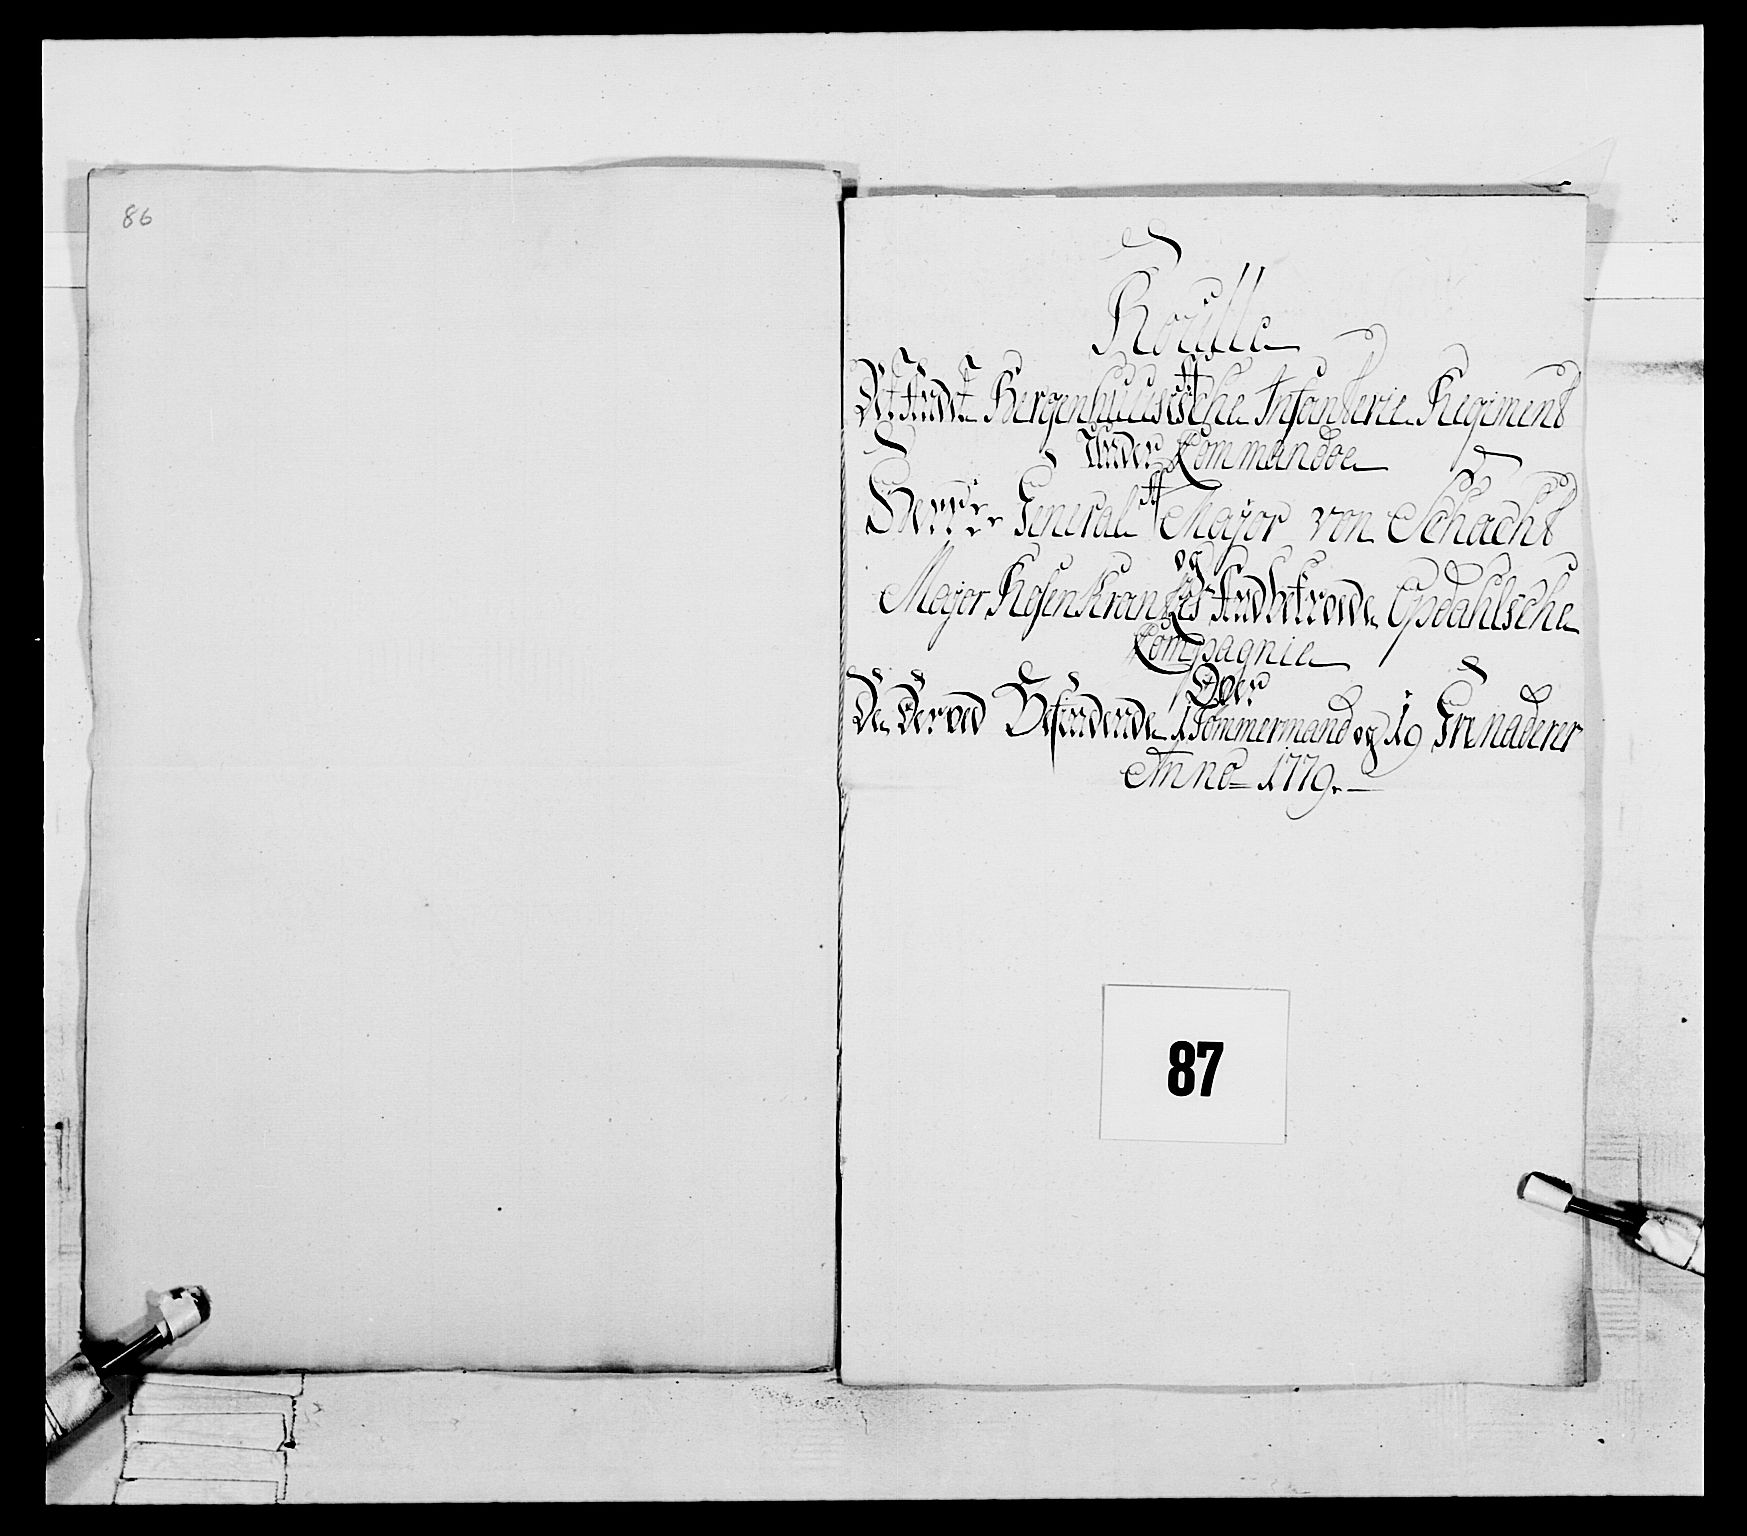 86
Roulle
Det Andet Bergenhuusiske Infanterie Regiment
Under Commandoe
Herr General Major von Schacht
og
Major Rosenkrantzes Andbetroede Opdahlsche
Compagnie
Over
De Derved Befindende 1 Tømmermand og 19 Grenaderer
Anno 1779.
87